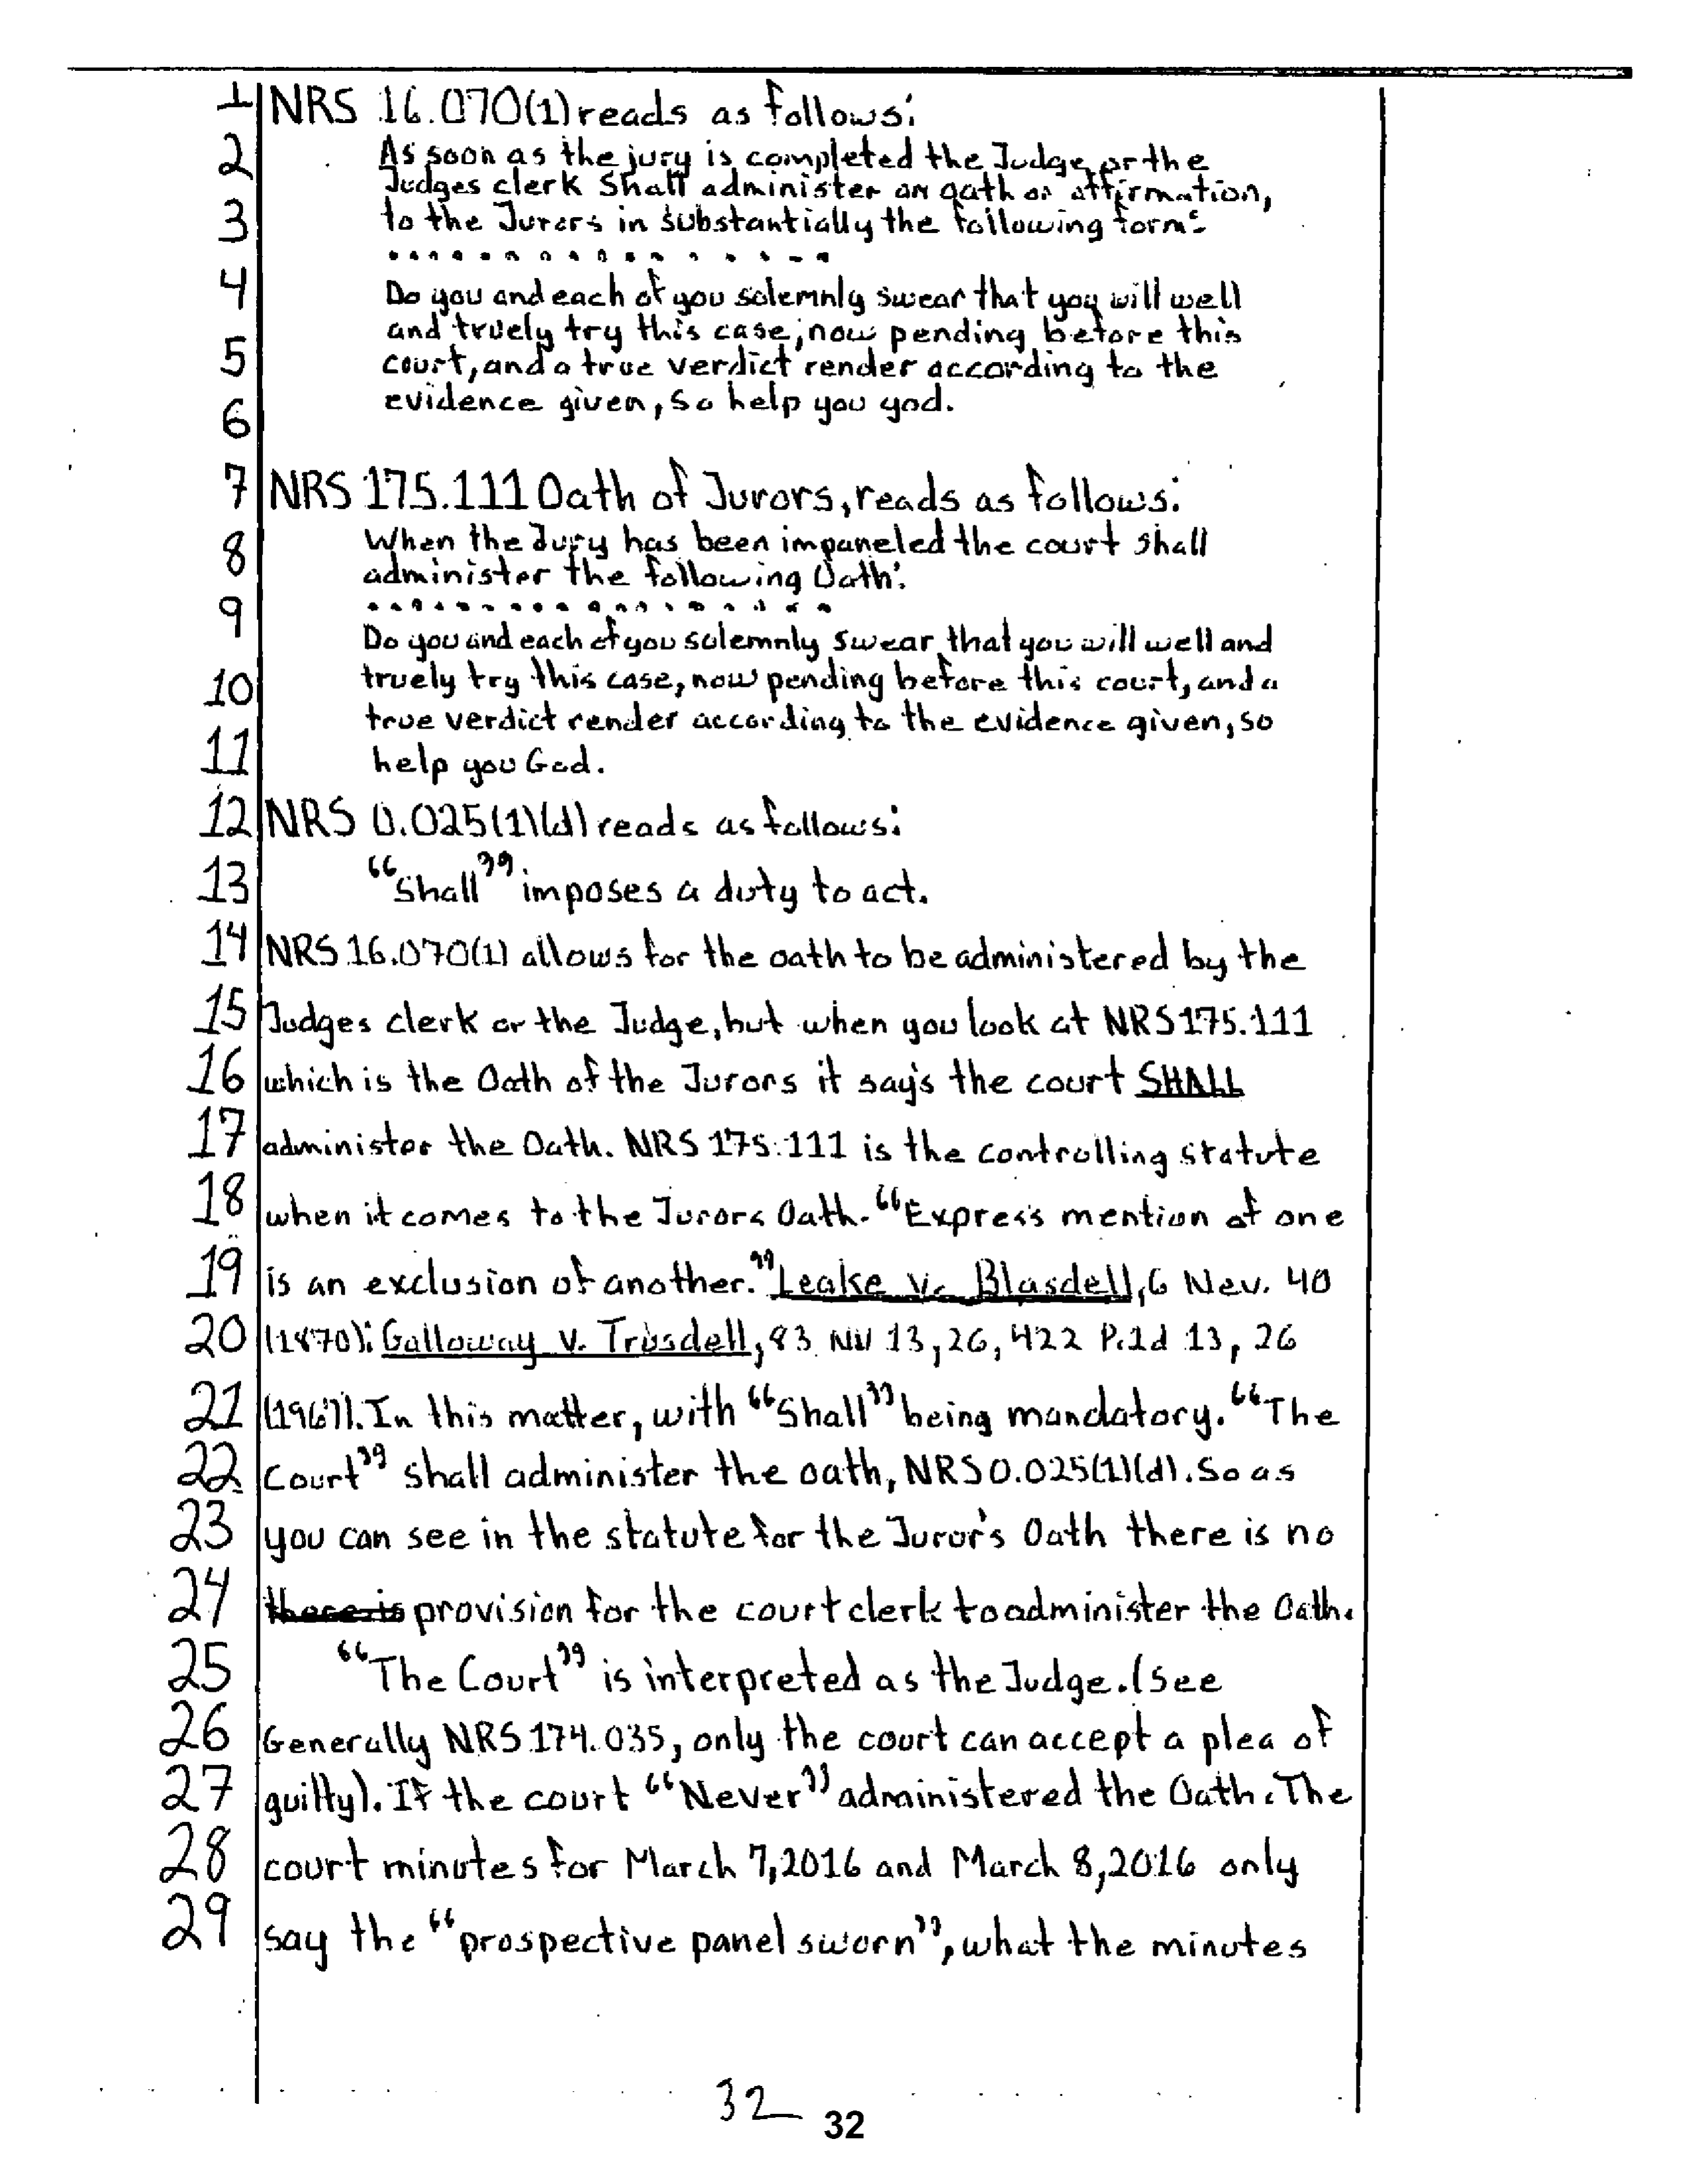 1 NRS 16.070(1) reads as follows:
2 As soon as the jury is completed the Judge or the
Judges clerk Shall administer an oath or affirmation,
3 to the Jurors in substantially the following form:
. . . . . . . . . . . . . . . . .
4 Do you and each of you solemnly swear that you will well
and truely try this case, now pending before this
5 court, and a true verdict render according to the
6 evidence given, so help you god.
7 NRS 175.111 Oath of Jurors, reads as follows:
8 When the Jury has been impaneled the court shall
administer the following Oath:
9 . . . . . . . . . . . . . . . . .
Do you and each of you solemnly swear that you will well and
10 truely try this case, now pending before this court, and a
true verdict render according to the evidence given, so
11 help you God.
12 NRS 0.025(1)(d) reads as follows:
13 "Shall" imposes a duty to act.
14 NRS 16.070(1) allows for the oath to be administered by the
15 Judges clerk or the Judge, but when you look at NRS 175.111
16 which is the Oath of the Jurors it say's the court SHALL
17 administer the Oath. NRS 175.111 is the controlling statute
18 when it comes to the Jurors Oath. "Express mention of one
19 is an exclusion of another." Leake v. Blasdell, 6 Nev. 40
20 (1870); Galloway v. Trusdell, 83 NV 13, 26, 422 P.2d 13, 26
21 (1967). In this matter, with "Shall" being mandatory. "The
22 Court" shall administer the oath, NRS 0.025(1)(d). So as
23 you can see in the statute for the Juror's Oath there is no
24 there is provision for the court clerk to administer the Oath.
25 "The Court" is interpreted as the Judge. (See
26 Generally NRS 174.035, only the court can accept a plea of
27 guilty). If the court "Never" administered the Oath. The
28 court minutes for March 7, 2016 and March 8, 2016 only
29 say the "prospective panel sworn", what the minutes
32
32